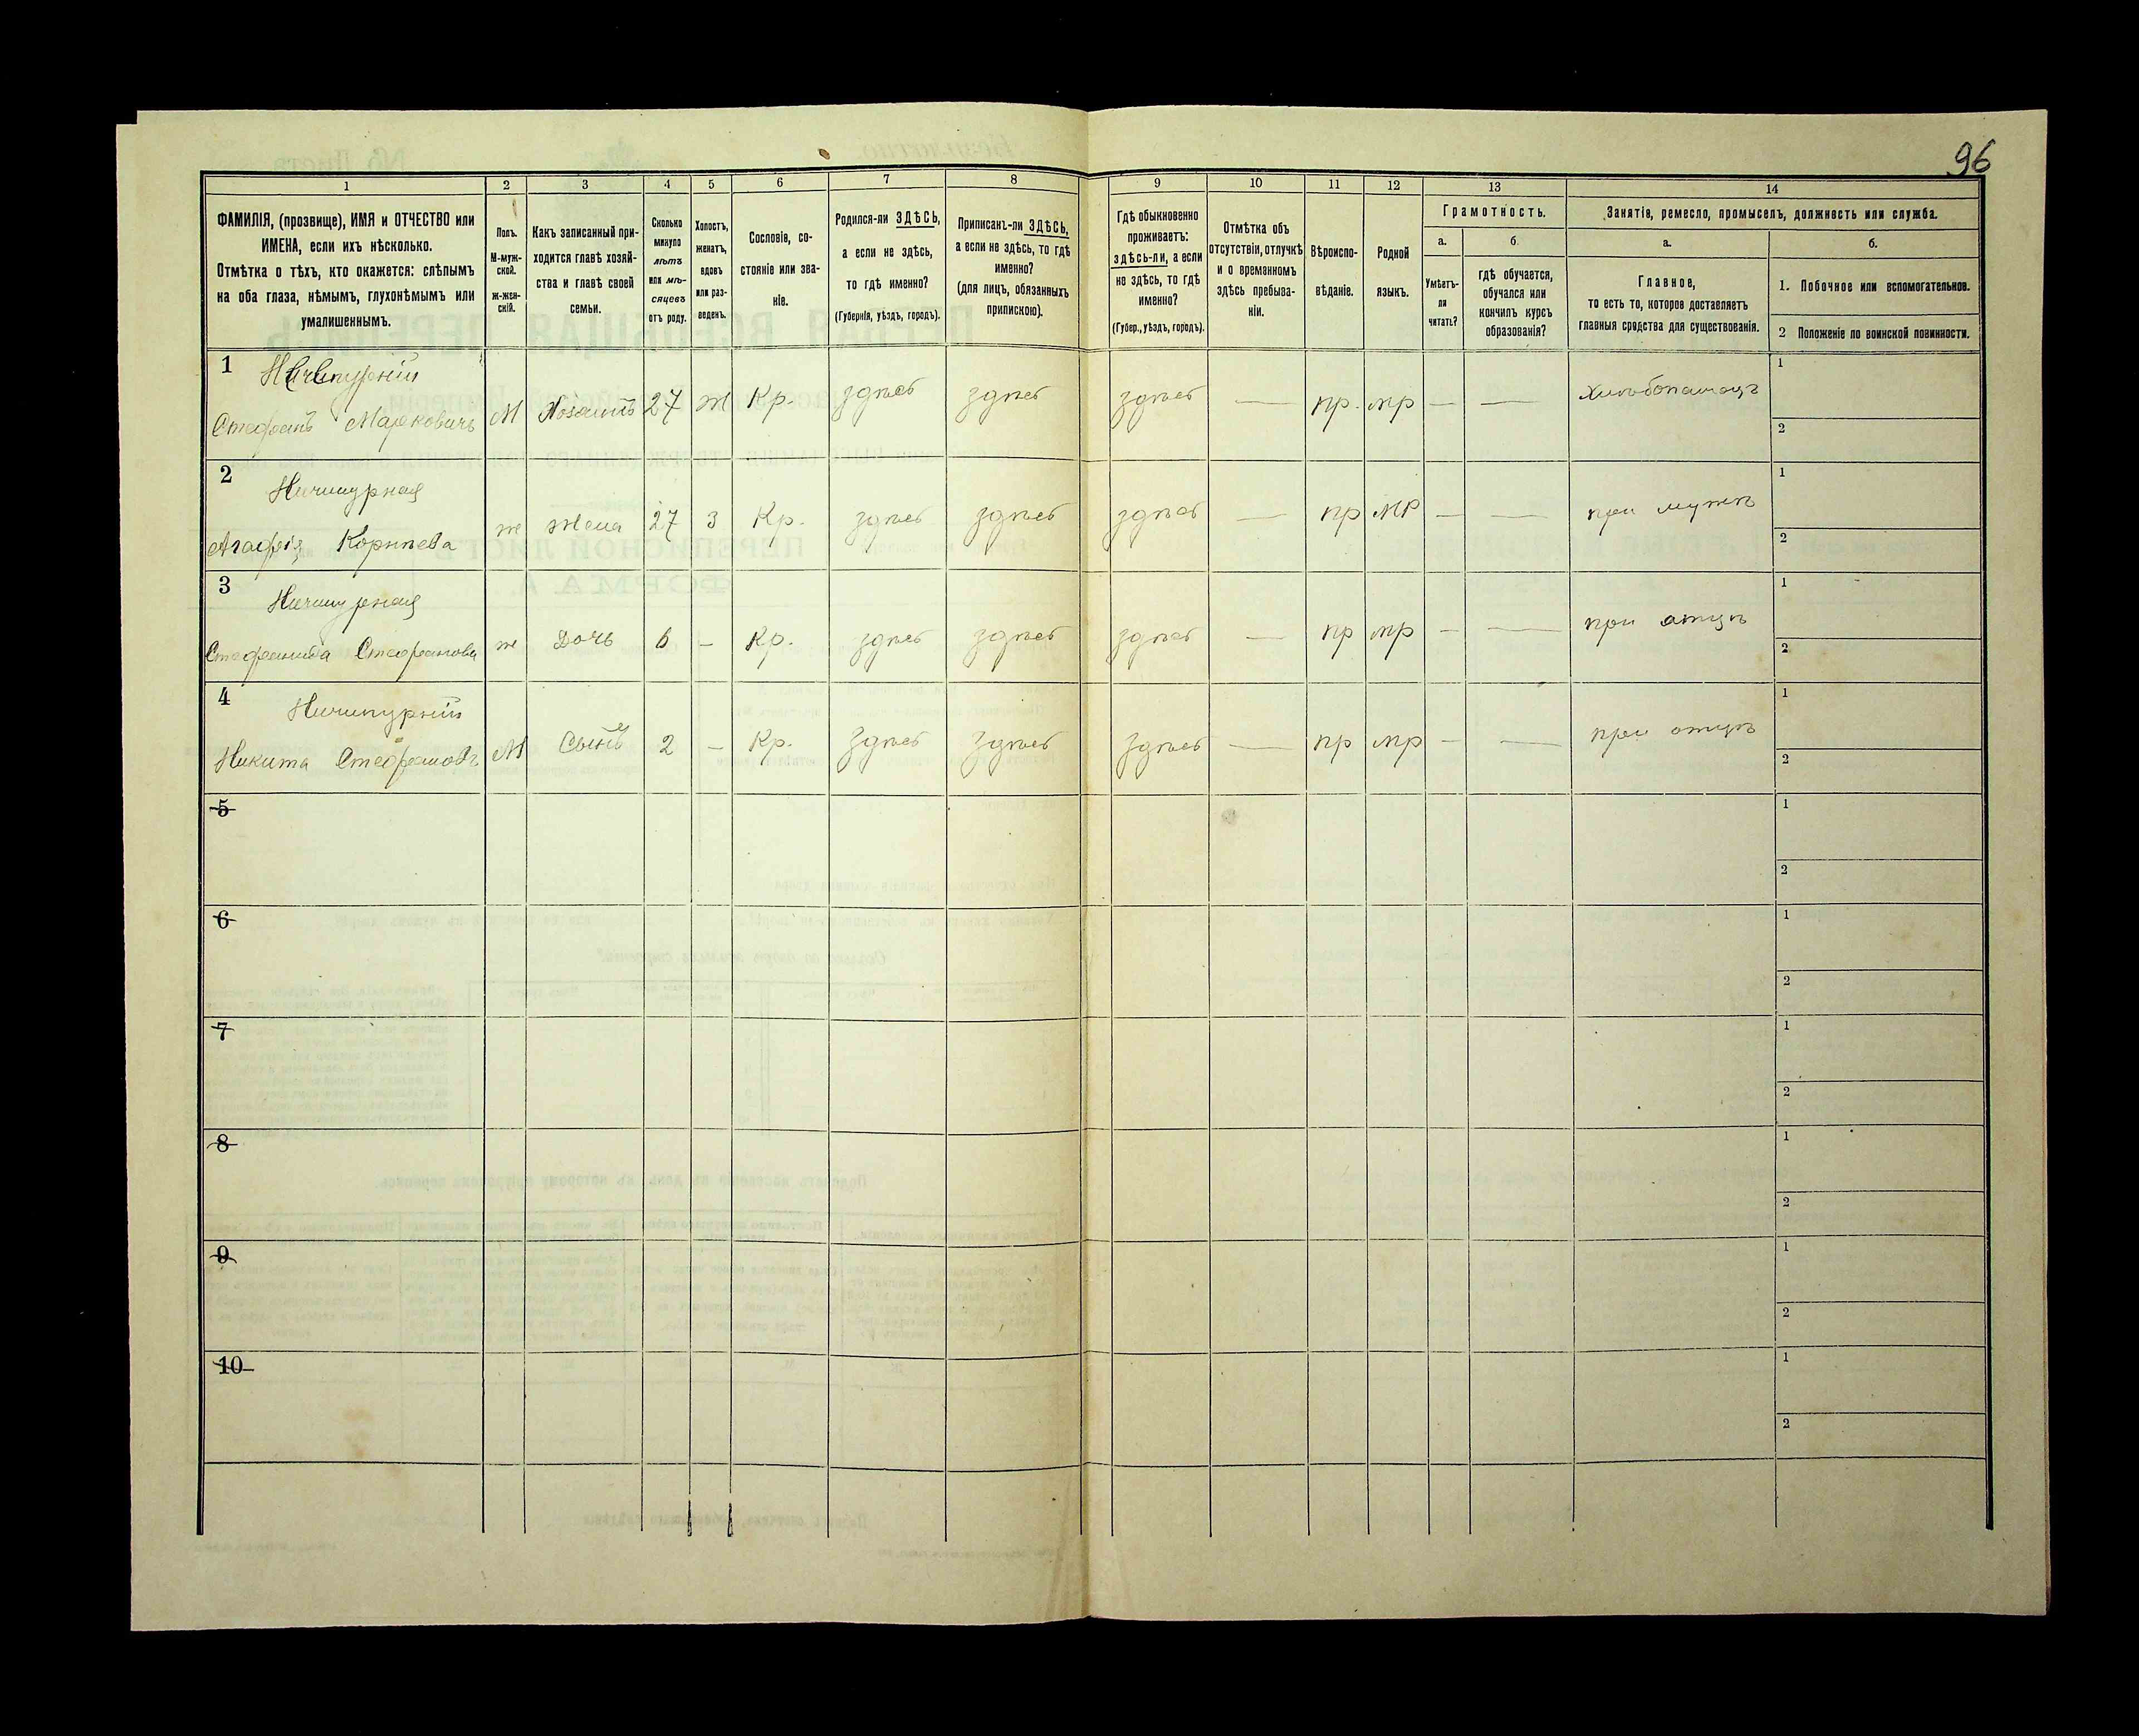 96
1 2 3 4 5 6 7 8 9 10 11 12 13 14
ФАМИЛІЯ, (прозвище), ИМЯ и ОТЧЕСТВО или
ИМЕНА, если ихъ нѣсколько.
Отмѣтка о тѣхъ, кто окажется: слѣпымъ
на оба глаза, нѣмымъ, глухонѣмымъ или
умалишеннымъ.
Полъ.
М-муж-
ской.
ж-жен-
скій.
Какъ записанный при-
ходится главѣ хозяй-
ства и главѣ своей
семьи.
Сколько
минуло
лѣтъ
или мѣ-
сяцевъ
отъ роду.
Холостъ,
женатъ,
вдовъ
или раз-
веденъ.
Сословіе, со-
стояніе или зва-
ніе.
Родился-ли ЗДѢСЬ,
а если не здѣсь,
то гдѣ именно?
(Губернія, уѣздъ, городъ).
Приписанъ-ли ЗДѢСЬ,
а если не здѣсь, то гдѣ
именно?
(для лицъ, обязанныхъ
припискою).
Гдѣ обыкновенно
проживаетъ:
здѣсь-ли, а если
не здѣсь, то гдѣ
именно?
(Губер., уѣздъ, городъ).
Отмѣтка объ
отсутствіи, отлучкѣ
и о временномъ
здѣсь пребыва-
ніи.
Вѣроиспо-
вѣданіе.
Родной
языкъ.
Грамотность.
а.
Умѣетъ-
ли
читать?
б.
гдѣ обучается,
обучался или
кончилъ курсъ
образованія?
Занятіе, ремесло, промыселъ, должность или служба.
а.
Главное,
то есть то, которое доставляетъ
главныя средства для существованія.
б.
1. Побочное или вспомогательное.
2 Положеніе по воинской повинности.
1 Ничипурній
Стефанъ Марковичъ М Хозяинъ 27 Ж Кр. здѣсь здѣсь здѣсь — пр. мр — — Хлѣбопашецъ
1
2
2 Ничипурная
Агафія Корнѣева ж Жена 27 З Кр. здѣсь здѣсь здѣсь — пр мр — — при мужѣ
1
2
3 Ничипурная
Стефанида Стефанова ж Дочь 6 — Кр. здѣсь здѣсь здѣсь — пр мр — — при отцѣ
1
2
4 Ничипурній
Никита Стефановъ М Сынъ 2 — Кр. здѣсь здѣсь здѣсь — пр мр — — при отцѣ
1
2
5
1
2
6
1
2
7
1
2
8
1
2
9
1
2
10
1
2